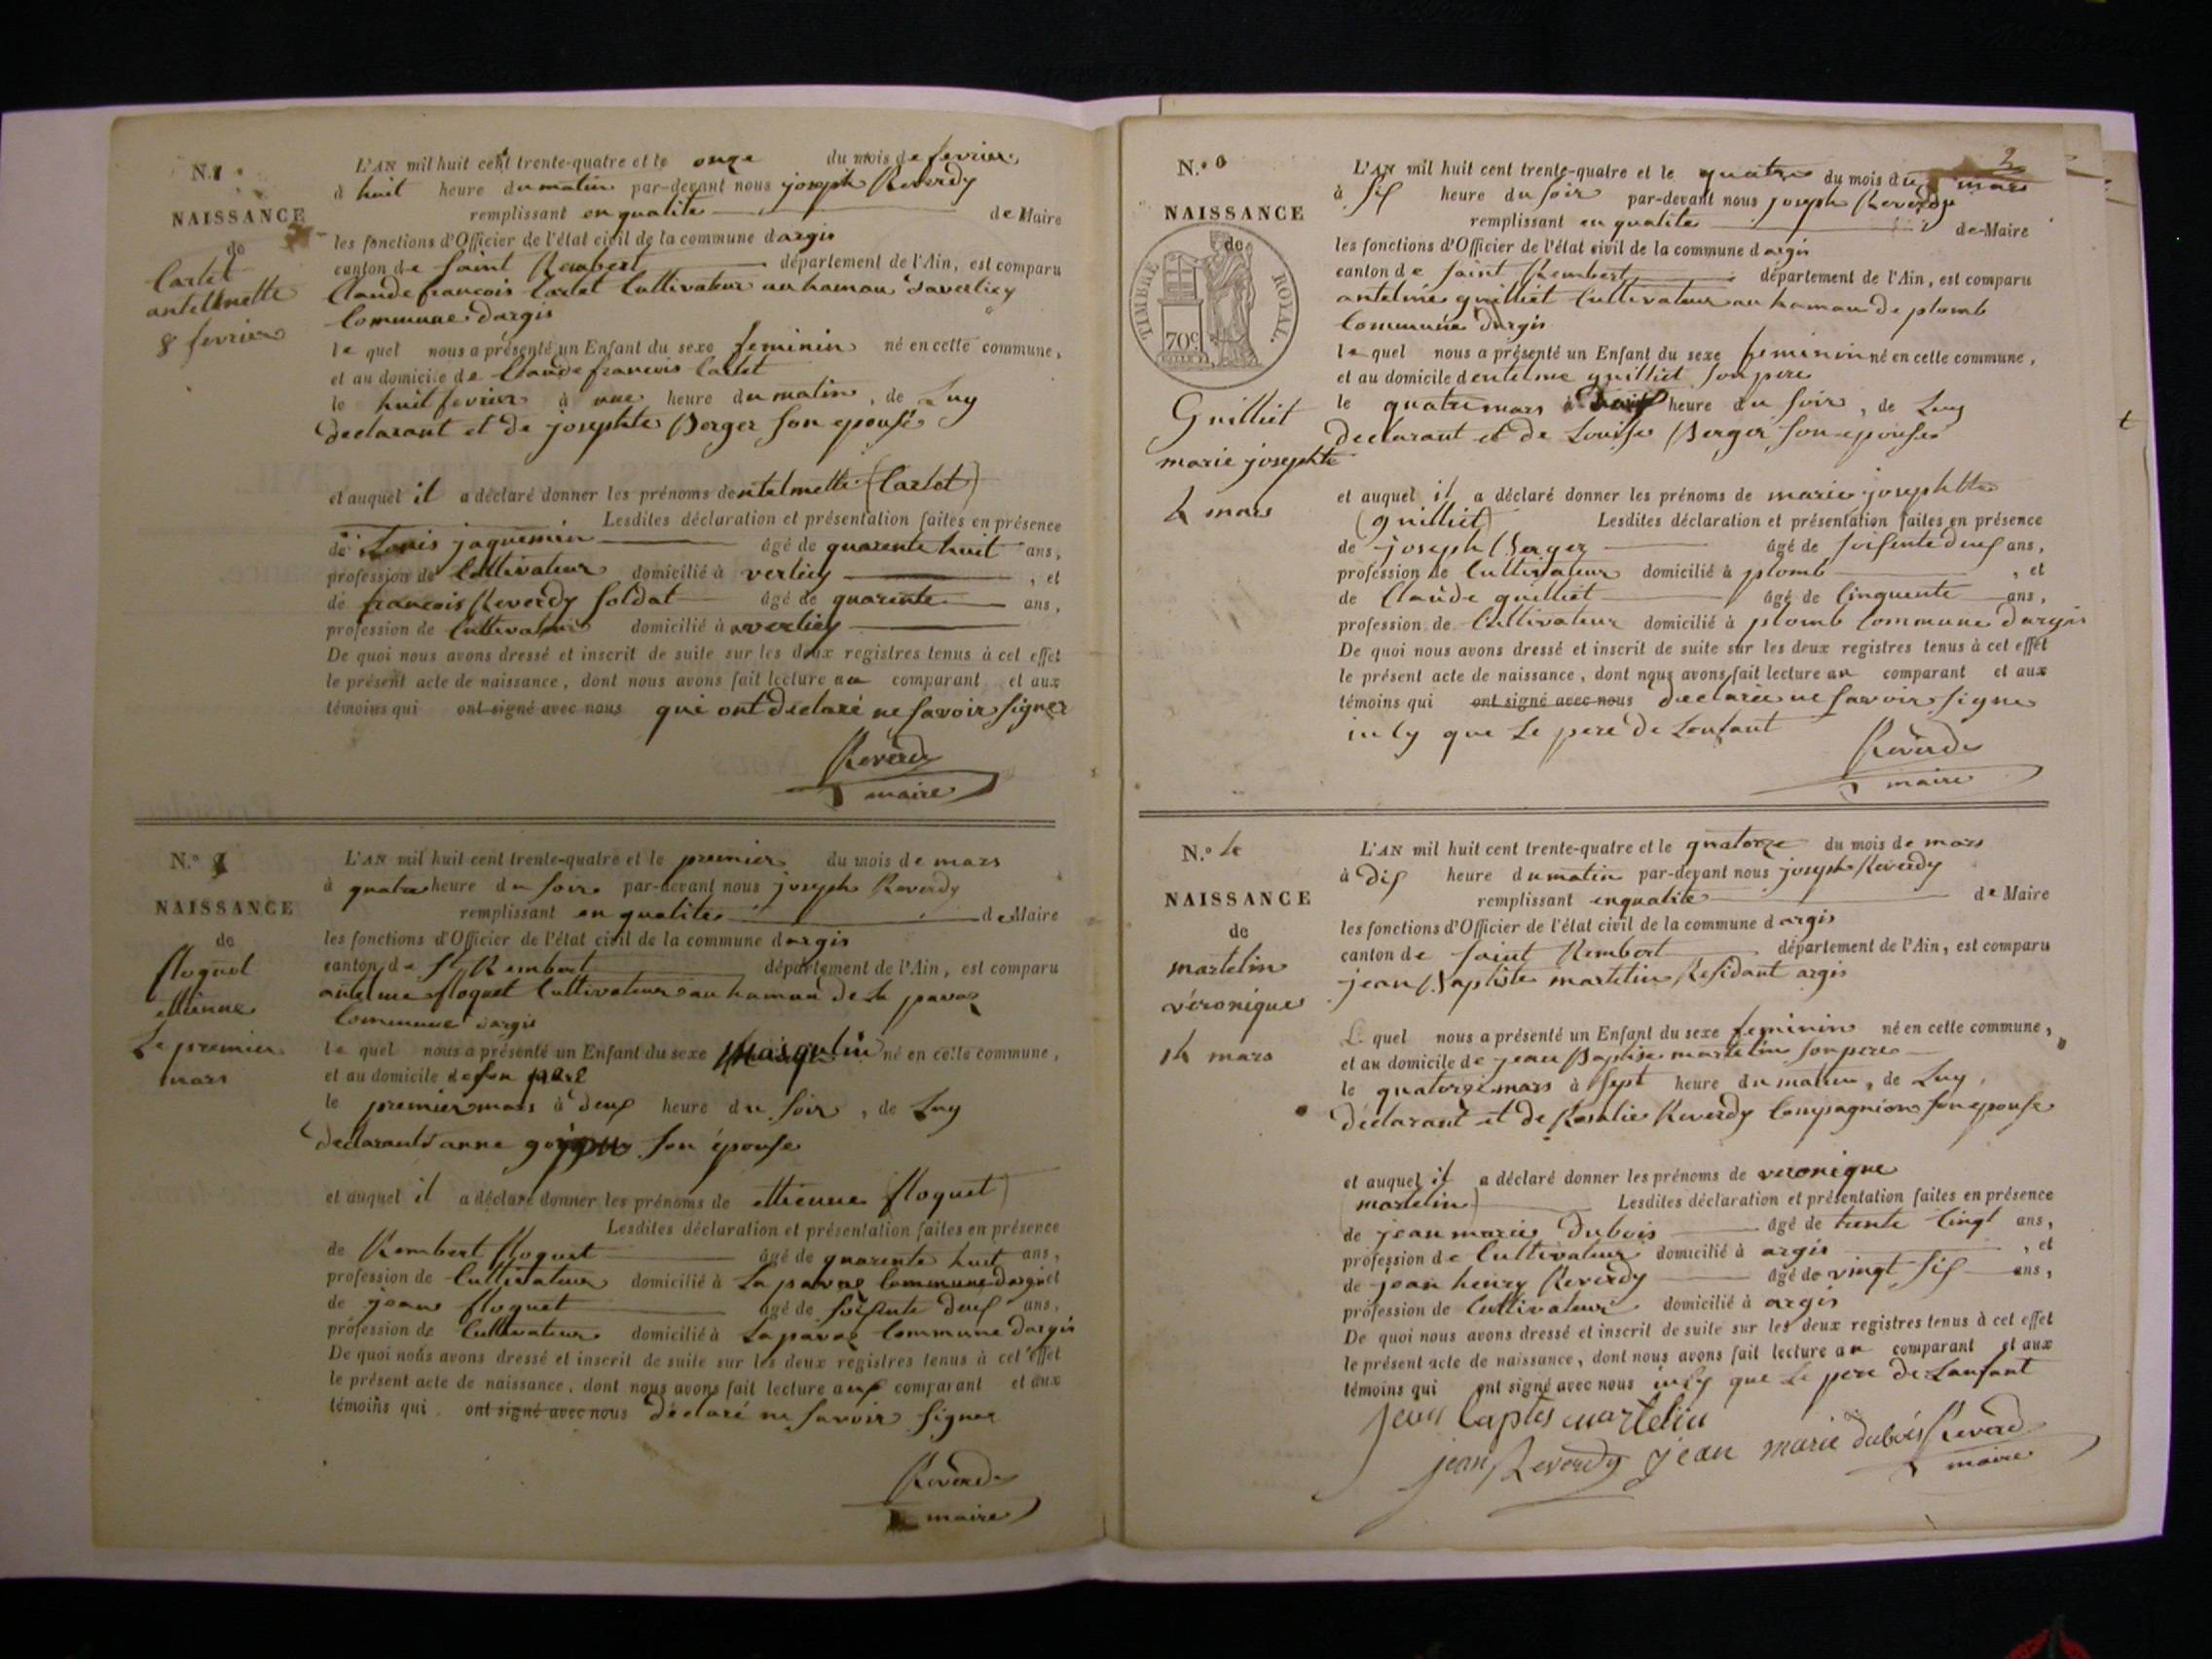 N.1
NAISSANCE
de
Cartet
antelmette
8 fevrier
L'AN mil huit cent trente-quatre et le onze du mois de fevrier
à huit heure du matin par-devant nous joseph Reverdy
remplissant en qualite de Maire
les fonctions d'Officier de l'état civil de la commune dargis
canton de saint Rembert département de l'Ain, est comparu
Claude francois Cartet Cultivateur au hamau daverliey
Commune dargis
le quel nous a présenté un Enfant du sexe feminin né en cette commune,
et au domicile de Claude francois Cartet
le huit fevrier à une heure du matin, de Luy
declarant et de josephte Berger son epouse
et auquel il a déclaré donner les prénoms dentelmette (Cartet)
Lesdites déclaration et présentation faites en présence
de Louis jaquemin âgé de quarente huit ans,
profession de Cultivateur domicilié à verliey, et
de francois Reverdy soldat âgé de quarente ans,
profession de Cultivateur domicilié à averliey
De quoi nous avons dressé et inscrit de suite sur les deux registres tenus à cet effet
le présent acte de naissance, dont nous avons fait lecture au comparant et aux
témoins qui ont signé avec nous qui ont declaré ne savoir signer
Reverdy
maire
N.°
NAISSANCE
de
floquet
ettienne
Le premier
mars
L'AN mil huit cent trente-quatre et le premier du mois de mars
à quatre heure du soir par-devant nous joseph Reverdy
remplissant en qualite de Maire
les fonctions d'Officier de l'état civil de la commune dargis
canton de St Rembert département de l'Ain, est comparu
antelme floquet Cultivateur au hamau de La pavaz
Commune dargis
le quel nous a présenté un Enfant du sexe Masqulin né en cette commune,
et au domicile de son pere
le premier mars à deux heure du soir, de Luy
declarant d anne son épouse
et auquel il a déclaré donner les prénoms de ettienne (floquet)
Lesdites déclaration et présentation faites en présence
de Rembert floquet âgé de quarente huit ans,
profession de Cultivateur domicilié à La pavaz Commune dargis et
de jean floquet âgé de soisente deux ans,
profession de Cultivateur domicilié à La pavaz Commune dargis
De quoi nous avons dressé et inscrit de suite sur les deux registres tenus à cet effet
le présent acte de naissance, dont nous avons fait lecture aux comparant et aux
témoins qui ont signé avec nous déclaré ne savoir signer
Reverdy
maire
2
N.°
NAISSANCE
de
TIMBRE ROYAL.
70c
Guilliet
marie josephte
4 mars
L'AN mil huit cent trente-quatre et le quatre du mois du mars
à six heure du soir par-devant nous joseph Reverdy
remplissant en qualite de Maire
les fonctions d'Officier de l'état civil de la commune dargis
canton de saint Rembert département de l'Ain, est comparu
antelme guilliet Cultivateur au hamau de plomb
Commune dargis
le quel nous a présenté un Enfant du sexe feminin né en cette commune,
et au domicile dentelme guilliet son pere
le quatre mars à heure du soir, de Luy
declarant et de Louise Berger son epouse
et auquel il a déclaré donner les prénoms de marie josephtte
(guilliet) Lesdites déclaration et présentation faites en présence
de joseph Berger âgé de soisente deux ans,
profession de Cultivateur domicilié à plomb, et
de Claude guilliet âgé de Cinquente ans,
profession de Cultivateur domicilié à plomb Commune dargis
De quoi nous avons dressé et inscrit de suite sur les deux registres tenus à cet effet
le présent acte de naissance, dont nous avons fait lecture au comparant et aux
témoins qui ont signé avec nous declaree ne savoir signe
incy que Le pere de Lenfant
Reverdy
maire
N.° 4
NAISSANCE
de
martelin
véronique
14 mars
L'AN mil huit cent trente-quatre et le quatorze du mois de mars
à dix heure du matin par-devant nous joseph Reverdy
remplissant en qualite de Maire
les fonctions d'Officier de l'état civil de la commune dargis
canton de saint Rembert département de l'Ain, est comparu
jean Baptiste martelin Residant argis
Le quel nous a présenté un Enfant du sexe feminin né en cette commune,
et au domicile de jean Baptise martelin son pere
le quatorze mars à sept heure du matin, de Luy
declarant et de Rosalie Reverdy Compagnion son epouse
et auquel il a déclaré donner les prénoms de veronique
(martelin) Lesdites déclaration et présentation faites en présence
de jean marie Dubois âgé de trente Cinqt ans,
profession de Cultivateur domicilié à argis, et
de jean henry Reverdy âgé de vingt six ans,
profession de Cultivateur domicilié à argis
De quoi nous avons dressé et inscrit de suite sur les deux registres tenus à cet effet
le présent acte de naissance, dont nous avons fait lecture au comparant et aux
témoins qui ont signé avec nous incy que Le pere de Lanfant
jean baptis martelin
jean Reverdy jean marie dubois Reverdy
maire